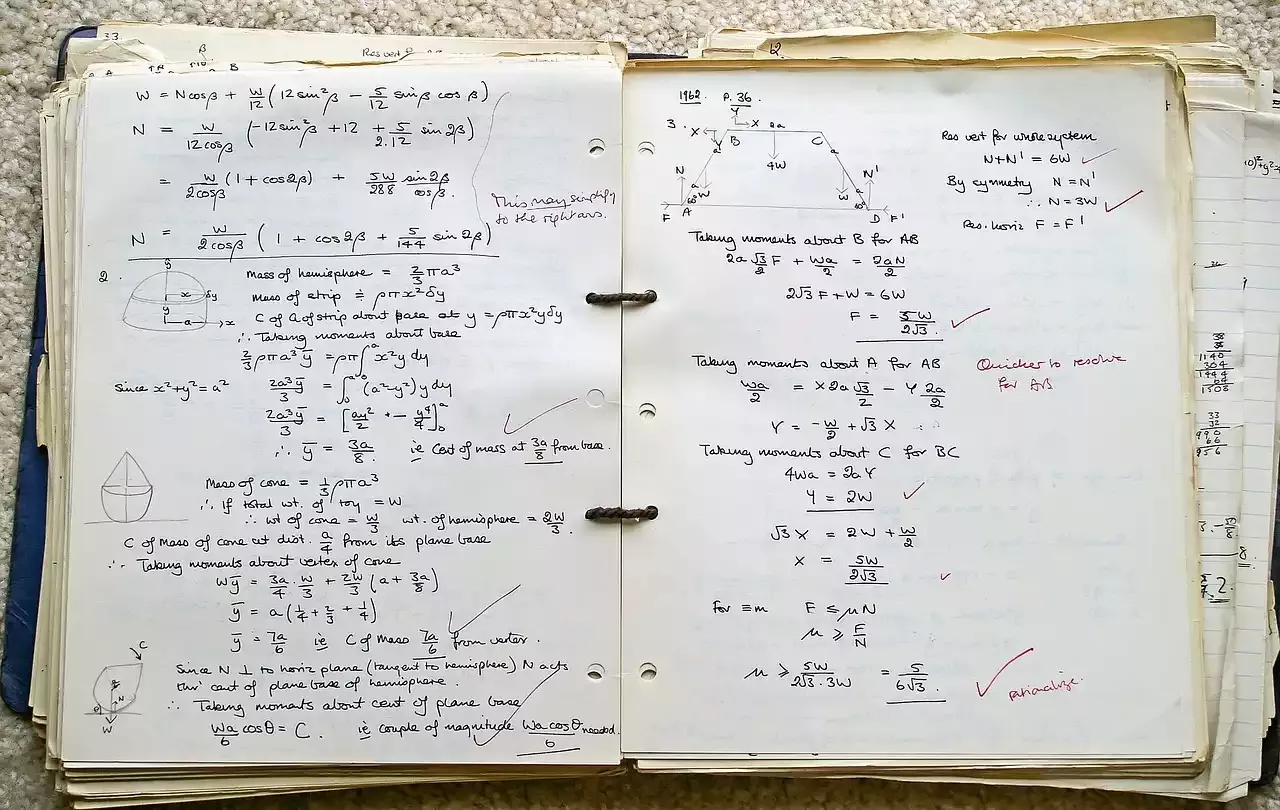 33.
β
Res vert
B
W = N cosβ + W/12 (12 sin²β − 5/12 sinβ cosβ)
N = W/12cosβ (−12 sin²β + 12 + 5/2.12 sin 2β)
= W/2cosβ (1 + cos2β) + 5W/288 sin2β/cosβ.
This may simplify
to the right ans.
N = W/2cosβ (1 + cos2β + 5/144 sin 2β)
2.
y
x δy
y
a x
Mass of hemisphere = 2/3 πa³
Mass of strip ≑ ρπx²δy
C of G of strip about base at y = ρπx²yδy
∴ Taking moments about base
2/3 ρπa³ȳ = ρπ∫₀ᵃ x²y dy
Since x²+y²=a² 2a³ȳ/3 = ∫₀ᵃ (a²−y²)y dy
2a³ȳ/3 = [ay²/2 − y⁴/4]₀ᵃ
∴ ȳ = 3a/8 ie Cent of mass at 3a/8 from base.
Mass of cone = 1/3 ρπa³
∴ If total wt. of toy = W
∴ wt of cone = W/3 wt. of hemisphere = 2W/3.
C of Mass of cone at dist. a/4 from its plane base
∴ Taking moments about vertex of cone
Wȳ = 3a/4 . W/3 + 2W/3 (a + 3a/8)
ȳ = a(1/4 + 2/3 + 1/4)
ȳ = 7a/6 ie C of Mass 7a/6 from vertex.
C
N
θ
W
Since N ⊥ to horiz plane (tangent to hemisphere) N acts
thro' cent of plane base of hemisphere.
∴ Taking moments about cent of plane base
Wa/6 cosθ = C. ie couple of magnitude Wa cosθ/6 needed.
12.
1962 P. 36.
3.
Y
X X 2a
Y B C
a 4W a
N N'
a W W a
60° 60°
F A D F'
Res vert for whole system
N+N' = 6W
By symmetry N=N'
∴ N=3W
Res. horiz F = F'
Taking moments about B for AB
2a √3/2 F + Wa/2 = 2aN/2
2√3 F + W = 6W
F = 5W/2√3.
Taking moments about A for AB
Quicker to resolve
for AB
Wa/2 = X 2a √3/2 − Y 2a/2
Y = −W/2 + √3 X
Taking moments about C for BC
4Wa = 2aY
Y = 2W
√3 X = 2W + W/2
X = 5W/2√3
For ≡m F ≤ μN
μ ≥ F/N
μ ≥ 5W/2√3.3W = 5/6√3.
rationalize.
38
1140
304
1444
64
1508
33
32
990
66
956